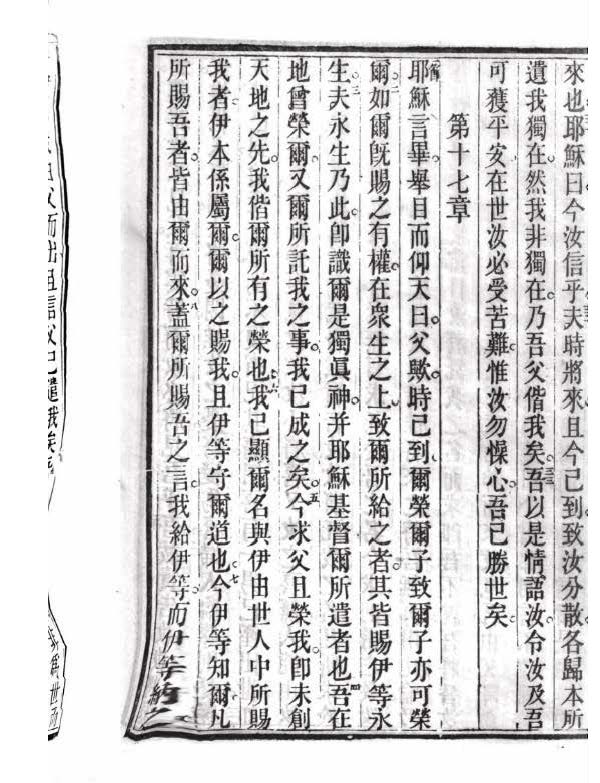 來也耶穌曰今汝信乎夫時將來且今已到致汝分散各歸本所
遺我獨在然我非獨在乃吾父偕我矣吾以是情語汝令汝及吾
可獲平安在世汝必受苦難惟汝勿懆心吾已勝世矣
第十七章
耶穌言畢舉目而仰天曰父歟時已到爾榮爾子致爾子亦可榮
爾如爾旣賜之有權在衆生之上致爾所給之者其皆賜伊等永
生夫永生乃此卽識爾是獨眞神并耶穌基督爾所遣者也吾在
地曾榮爾又爾所託我之事我已成之矣今求父且榮我卽未創
天地之先我偕爾所有之榮也我已顯爾名與伊由世人中所賜
我者伊本係屬爾爾以之賜我且伊等守爾道也今伊等知爾凡
所賜吾者皆由爾而來蓋爾所賜吾之言我給伊等而伊等納之
父而出且信父已遣我矣
爲世